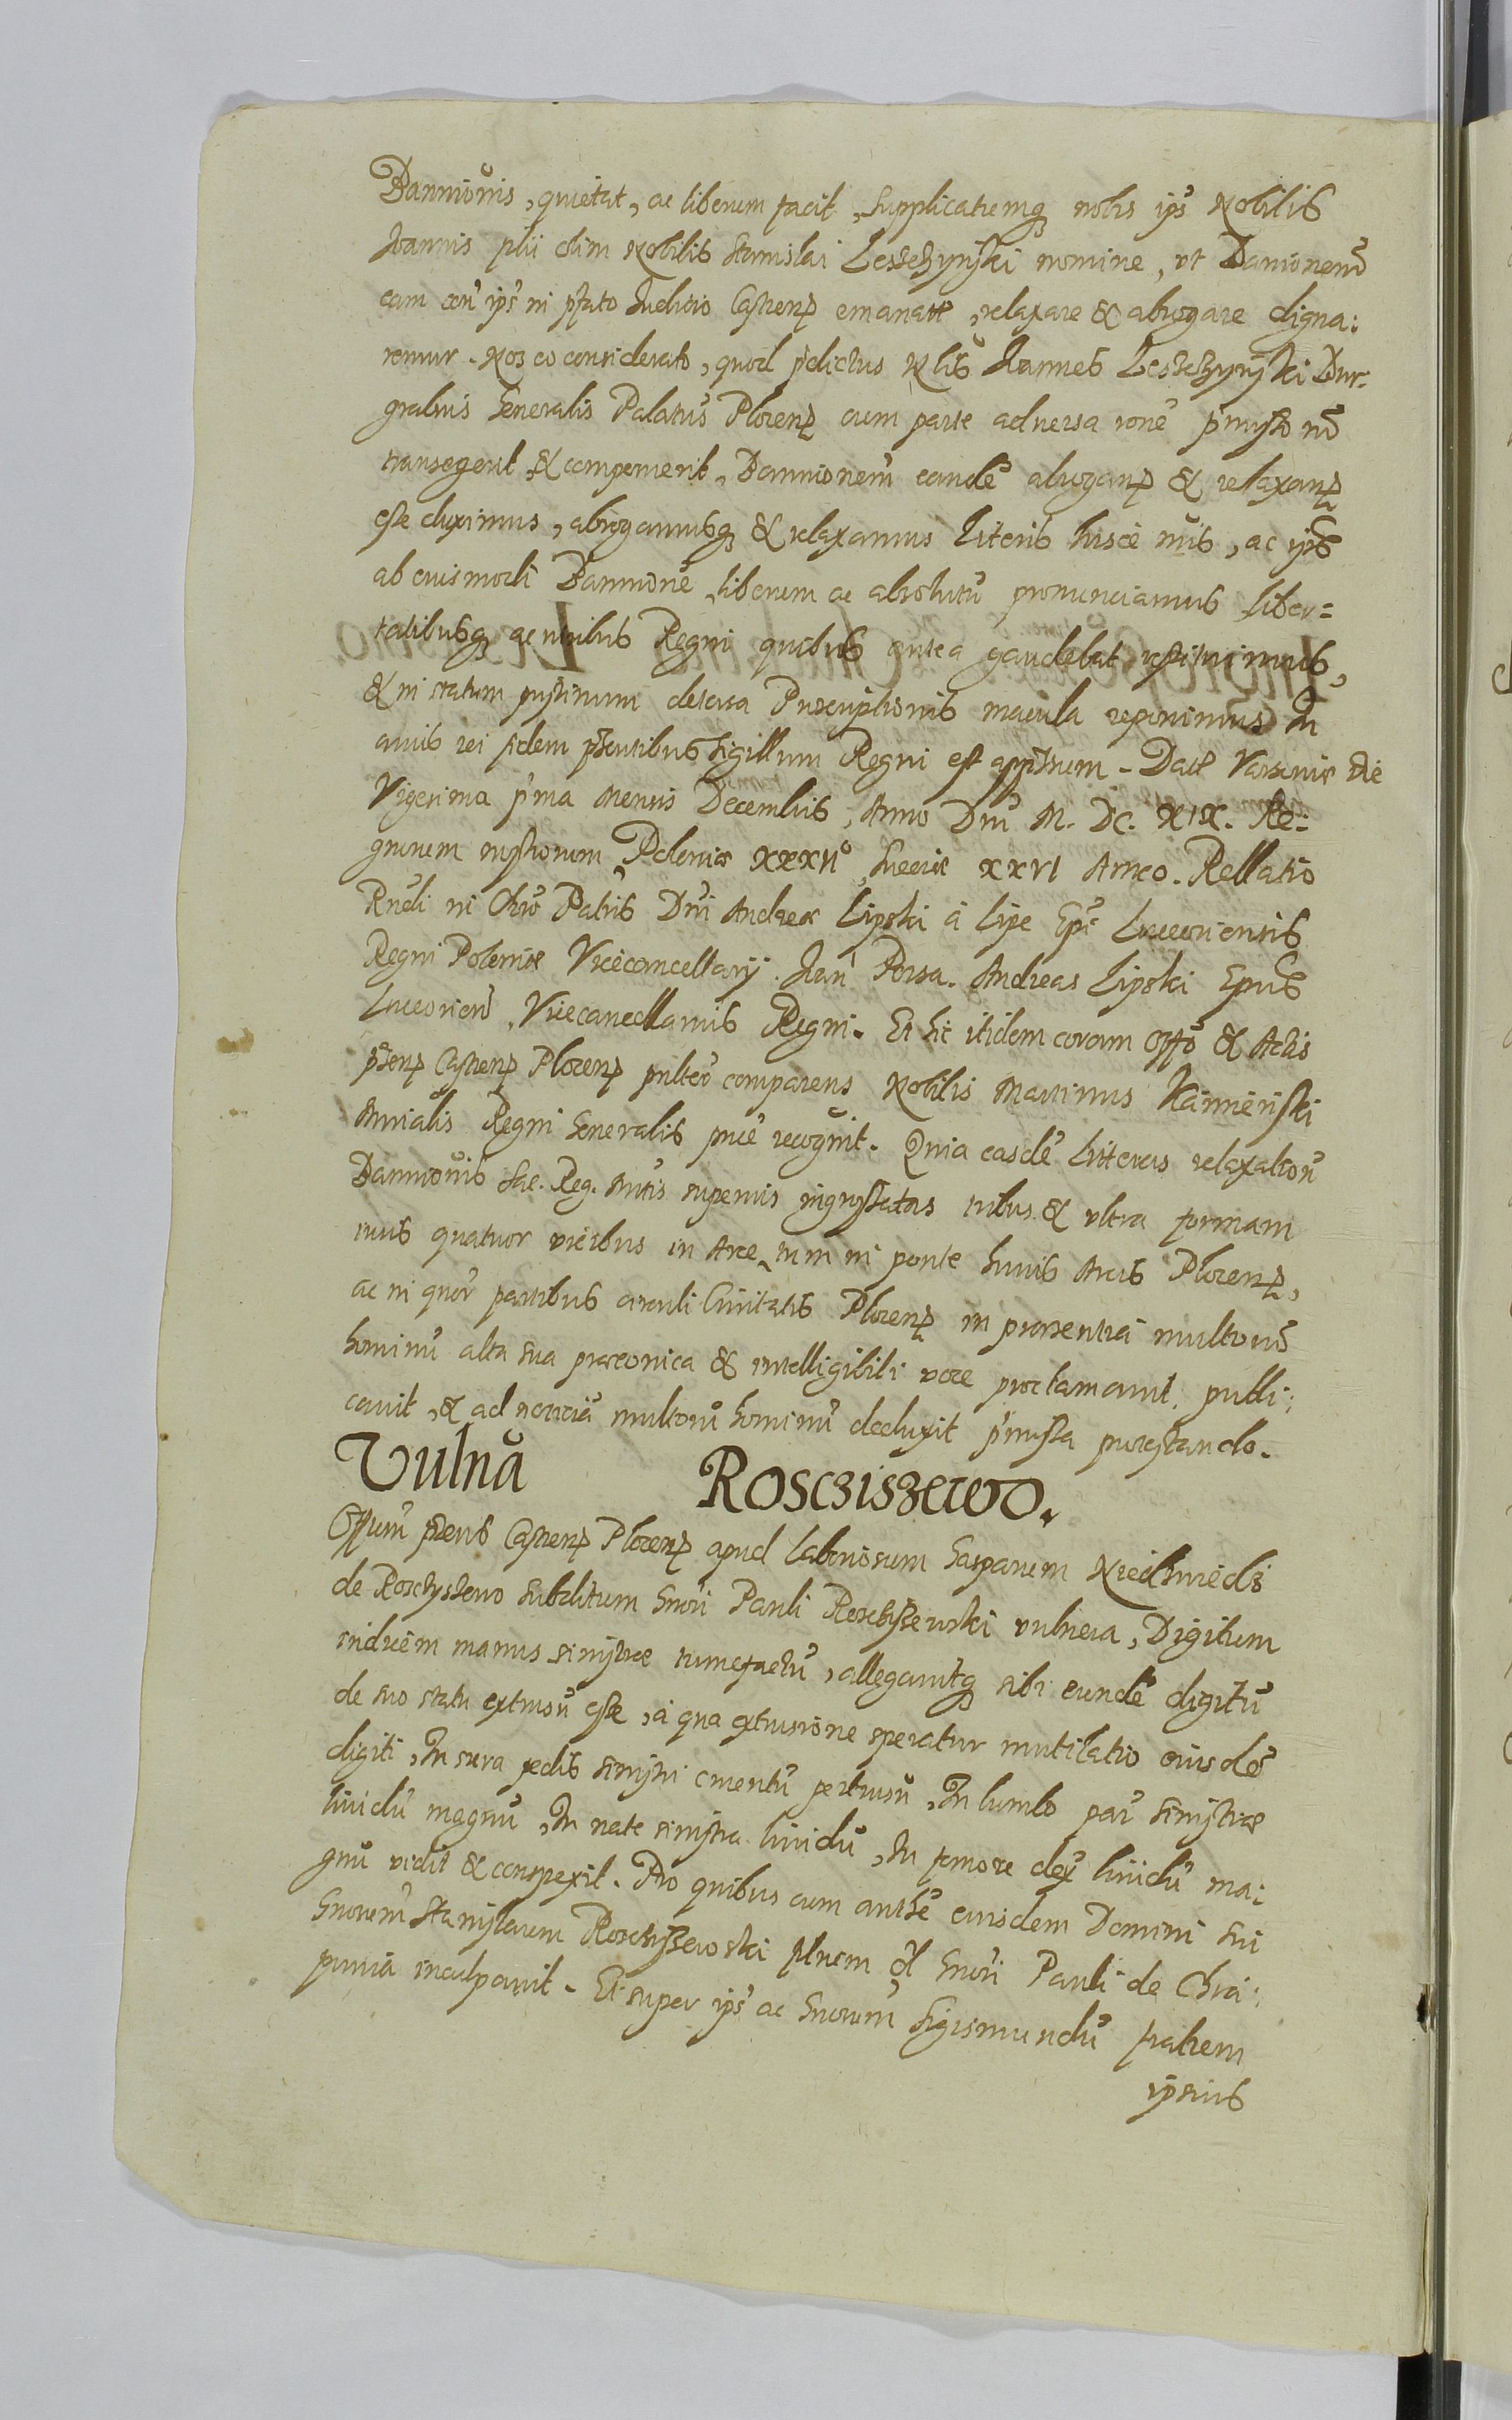 Bannionis, quietat, ac liberum facit, Supplicatiemq nobis ips Nobilis
Joannis filii olim Nobilis Stanislai Lesszczynski nomine, ut Bannionem
eam con ips in pfato Judicio Castren emanatt, relaxare & abrogare digna:
remur. Nos eo considerato, quod pdictus Nlis Joannes Leszczynski Bur-
grabius Generalis Palatus Plocen cum parte adversa rone pmissorum
transegerit & composuerit, Bannionem eande abrogan & relaxan
esse duximus, abrogamusq & relaxamus Literis hisce nris, ac ips
ab euismodi Bannione, liberum ac absolutu pronunciamus liber=
tatibusq ac iuribus Regni quibus antea gaudebat restituimus,
& in statum pristinum detersa Proscriptionis macula reponimus In
cuius rei fidem psentibus Sigillum Regni est appssum - Datt Varsovie die
Vigesima pma Mensis Decembris, Anno Dni M. DC. XIX. Re:
gnorum nostrorum Poloniæ XXXII°, Sueciæ XXVI Anno. Rellatio
Rndi in Chro Patris Dni Andreæ Lipski a Lipe Epi Luceoriensis
Regni Poloniæ Vicecancellarij. Jan Porsa. Andreas Lipski Epus
Luceorien, Vicecancellarius Regni. Et hic itidem coram Offo & Actis
psen Castren Plocen psnlter comparens Nobilis Martinus Kamienski
Mnrialis Regni Generalis puce recognit. Quia easde Litteras relaxation
Bannionis Sac. Reg. Mtis superius ingrossatas tribus & ultra formam
iuris quatuor vicibus in Arce, tum in ponte huius Arcis Plocen,
ac in quor partibus circuli Civitatis Plocen in præsentia multorum
hominu alta sua præconica & intelligibili voce proclamavit, publi:
cavit, & ad noticiã multoru hominu deduxit pmissa præstando.
Vulna Roscziszewo.
Offium psens Castren Plocen apud Laboriosum Gasparum Niedzwiedz
de Rosczyszewo Subditum Gnosi Pauli Rosczyssewski vulnera, Digitum
indicem manus sinistræ tumefactu, allegavitq sibi eunde digitu
de suo statu extrusu esse, a qua extrusione speratur mutilatio eiusde
digiti, In sura pedis sinistri cruentu pertusu, In lumbo par sinistræ
lividu magnu, In nate sinistra lividu, In femore dex lividu ma:
gnu vidit & conspexit. Pro quibus cum autthe eiusdem Domini sui
Gnosum Stanislaum Rosczyssewski filium ol Gnosi Pauli de Chra:
punia inculpavit. Et super ips ac Gnosum Sigismundu fratrem
ipsius